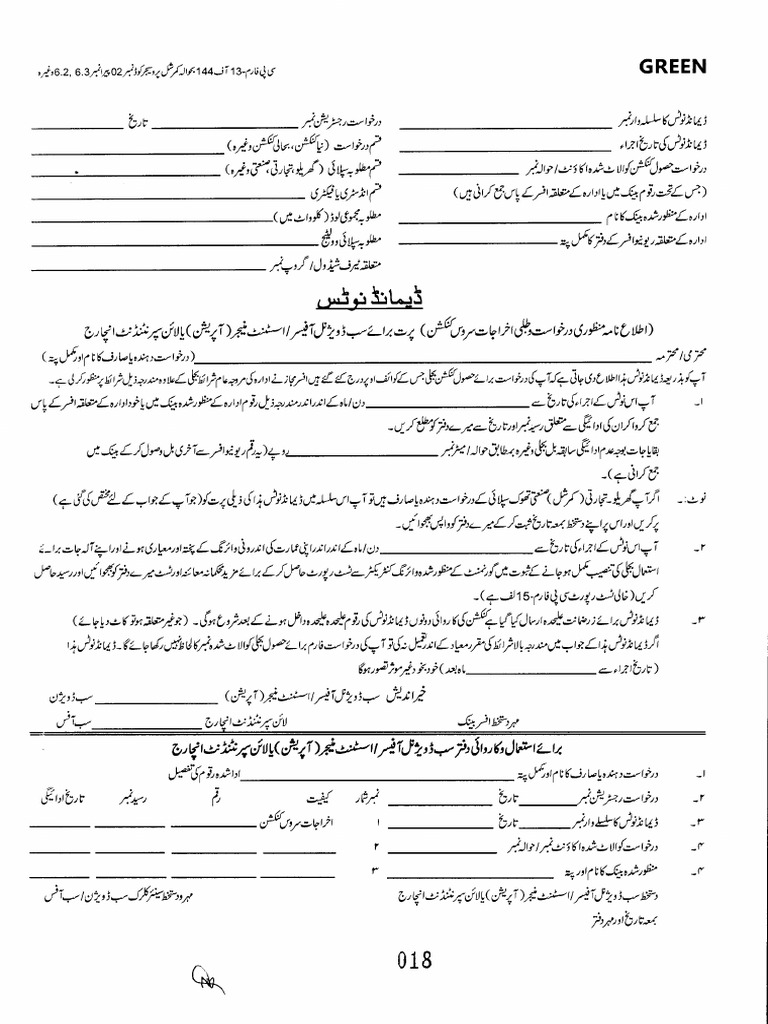 GREEN
سی پی فارم-13 آف 144 بحوالہ کمرشل پروسیجر کوڈ نمبر 02 پیرا نمبر 6.3 ,6.2 وغیرہ
ڈیمانڈ نوٹس کا سلسلہ وار نمبر ____________
درخواست رجسٹریشن نمبر ____________ تاریخ ____________
ڈیمانڈ نوٹس کی تاریخ اجراء ____________
قسم درخواست (نیا کنکشن، بحالی کنکشن وغیرہ) ____________
درخواست حصول کنکشن کو الاٹ شدہ اکاؤنٹ/حوالہ نمبر ____________
قسم مطلوبہ سپلائی (گھریلو، تجارتی، صنعتی وغیرہ) ____________
(جس کے تحت رقوم بینک میں یا ادارہ کے متعلقہ افسر کے پاس جمع کرانی ہیں)
قسم انڈسٹری یا فیکٹری ____________
ادارہ کے منظور شدہ بینک کا نام ____________
مطلوبہ مجموعی لوڈ (کلوواٹ میں) ____________
ادارہ کے متعلقہ ریونیو افسر کے دفتر کا مکمل پتہ ____________
مطلوبہ سپلائی وولٹیج ____________
متعلقہ ٹیرف شیڈول/گروپ نمبر ____________
ڈیمانڈ نوٹس
(اطلاع نامہ منظوری درخواست و طلبی اخراجات سروس کنکشن) پرت برائے سب ڈویژنل آفیسر/اسسٹنٹ منیجر (آپریشن) یا لائن سپرنٹنڈنٹ انچارج
محترمی/محترمہ ____________ (درخواست دہندہ یا صارف کا نام اور مکمل پتہ)
آپ کو بذریعہ ڈیمانڈ نوٹس ہذا اطلاع دی جاتی ہے کہ آپ کی درخواست برائے حصول کنکشن بجلی جس کے کوائف اوپر درج کئے گئے ہیں افسر مجاز نے ادارہ کی مروجہ عام شرائط بجلی کے علاوہ مندرجہ ذیل شرائط پر منظور کر لی ہے۔
۱۔ آپ اس نوٹس کے اجراء کی تاریخ سے ____________ دن/ماہ کے اندر اندر مندرجہ ذیل رقوم ادارہ کے منظور شدہ بینک میں یا خود ادارہ کے متعلقہ افسر کے پاس
جمع کروا کر ان کی ادائیگی سے متعلق رسید نمبر اور تاریخ سے میرے دفتر کو مطلع کریں۔
بقایا جات بوجہ عدم ادائیگی سابقہ بل بجلی وغیرہ بمطابق حوالہ/میٹر نمبر ____________ روپے (یہ رقم ریونیو افسر سے آخری بل وصول کر کے بینک میں
جمع کرانی ہے)۔
نوٹ:۔ اگر آپ گھریلو۔ تجارتی (کمرشل) صنعتی تھوک سپلائی کے درخواست دہندہ یا صارف ہیں تو آپ اس سلسلہ میں ڈیمانڈ نوٹس ہذا کی ذیلی پرت کو (جو آپ کے جواب کے لئے مختص کی گئی ہے)
پر کریں اور اس پر اپنے دستخط بمعہ تاریخ ثبت کر کے میرے دفتر کو واپس بھجوائیں۔
۲۔ آپ اس نوٹس کے اجراء کی تاریخ سے ____________ دن/ماہ کے اندر اندر اپنی عمارت کی اندرونی وائرنگ کے پختہ اور معیاری ہونے اور اپنے آلہ جات برائے
استعمال بجلی کی تنصیب مکمل ہو جانے کے ثبوت میں گورنمنٹ کے منظور شدہ وائرنگ کنٹریکٹر سے ٹسٹ رپورٹ حاصل کر کے برائے مزید محکمانہ معائنہ اور ٹسٹ میرے دفتر کو بھجوائیں اور رسید حاصل
کریں (خالی ٹسٹ رپورٹ سی پی فارم-15 لف ہے)۔
۳۔ ڈیمانڈ نوٹس برائے زر ضمانت علیحدہ ارسال کیا گیا ہے کنکشن کی کاروائی دونوں ڈیمانڈ نوٹس کی رقوم علیحدہ علیحدہ داخل ہونے کے بعد شروع ہوگی۔ (جو غیر متعلقہ ہو تو کاٹ دیا جائے)
اگر ڈیمانڈ نوٹس ہذا کے جواب میں مندرجہ بالا شرائط کی مقرر میعاد کے اندر تعمیل نہ کی تو آپ کی درخواست فارم برائے حصول بجلی کو الاٹ شدہ نمبر کا لحاظ نہیں رکھا جائے گا۔ ڈیمانڈ نوٹس ہذا
(تاریخ اجراء سے ____________ ماہ بعد) خود بخود غیر موثر تصور ہوگا
خیر اندیش سب ڈویژنل آفیسر/اسسٹنٹ منیجر (آپریشن) ____________ سب ڈویژن
مہر دستخط افسر بینک
لائن سپرنٹنڈنٹ انچارج ____________ سب آفس
برائے استعمال و کاروائی دفتر سب ڈویژنل آفیسر/اسسٹنٹ منیجر (آپریشن) یا لائن سپرنٹنڈنٹ انچارج
۱۔ درخواست دہندہ یا صارف کا نام اور مکمل پتہ ____________ ادا شدہ رقوم کی تفصیل
۲۔ درخواست رجسٹریشن نمبر ____________ تاریخ ____________ نمبر شمار کیفیت رقم رسید نمبر تاریخ ادائیگی
۳۔ ڈیمانڈ نوٹس کا سلسلے وار نمبر ____________ تاریخ ____________ ۱ اخراجات سروس کنکشن ____________
۴۔ درخواست کو الاٹ شدہ اکاؤنٹ نمبر/حوالہ نمبر ____________ ۲ ____________
۴۔ منظور شدہ بینک کا نام اور پتہ ____________ ۳ ____________
دستخط سب ڈویژنل آفیسر/اسسٹنٹ منیجر (آپریشن) یا لائن سپرنٹنڈنٹ انچارج
مہر و دستخط سینئر کلرک سب ڈویژن/سب آفس
بمعہ تاریخ اور مہر دفتر
018